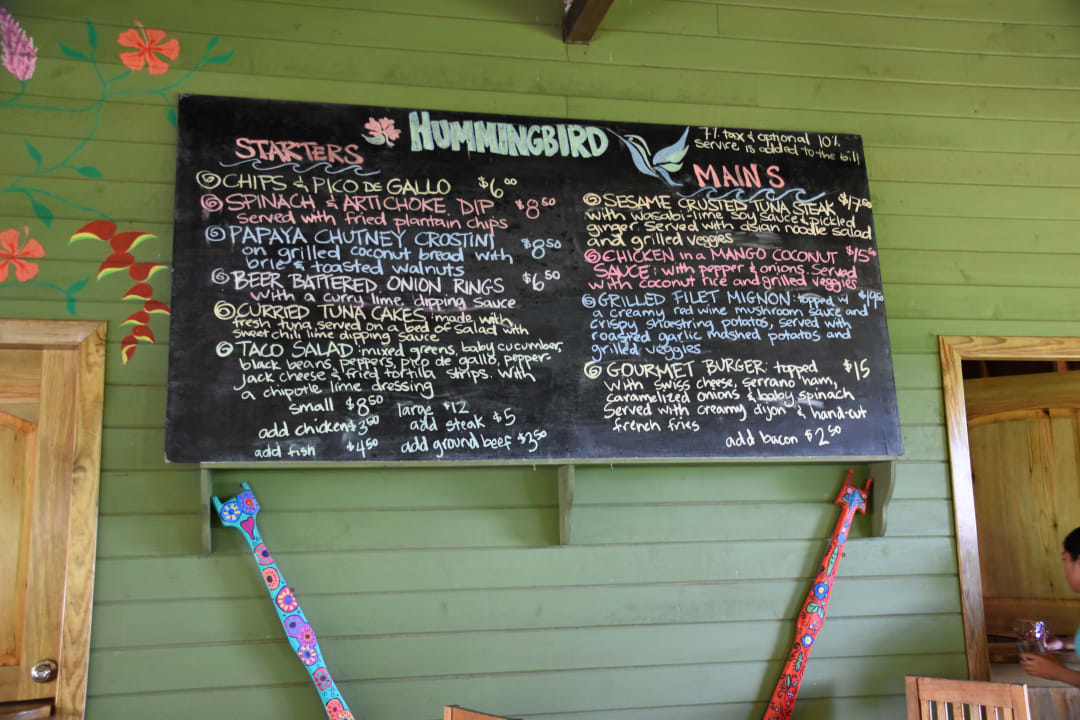 HUMMINGBIRD
7% tax & optional 10%
service is added to the bill
STARTERS
CHIPS & PICO DE GALLO $6.00
SPINACH & ARTICHOKE DIP $8.50
served with fried plantain chips
PAPAYA CHUTNEY CROSTINI $8.50
on grilled coconut bread with
brie & toasted walnuts
BEER BATTERED ONION RINGS $6.50
with a curry lime dipping sauce
CURRIED TUNA CAKES: made with
fresh tuna served on a bed of salad with
sweet chili lime dipping sauce
TACO SALAD: mixed greens, baby cucumber,
black beans, peppers, pico de gallo, pepper-
jack cheese & fried tortilla strips. with
a chipotle lime dressing
small $8.50 large $12
add chicken $3.50 add steak $5
add fish $4.50 add ground beef $3.50
MAINS
SESAME CRUSTED TUNA STEAK
with wasabi-lime soy sauce & pickled
ginger served with asian noodle salad
and grilled veggies
CHICKEN in a MANGO COCONUT
SAUCE: with pepper & onions. Served
with coconut rice and grilled veggies
GRILLED FILET MIGNON: topped w/
a creamy red wine mushroom sauce and
crispy shoestring potatos, served with
roasted garlic mashed potatos and
grilled veggies
GOURMET BURGER: topped $15
with swiss cheese, serrano ham,
caramelized onions & baby spinach
Served with creamy dijon & hand-cut
french fries
add bacon $2.50